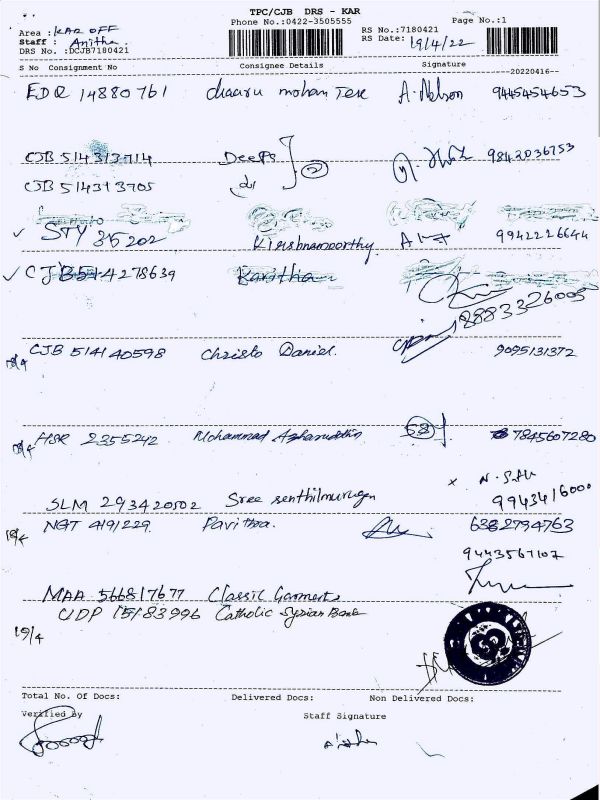 TPC/CJB DRS - KAR
Phone No.:0422-3505555
Page No.:1
Area : KAR OFF
Staff : Anitha
DRS No. :DCJB7180421
RS No.:7180421
RS Date: 19/4/22
S No Consignment No Consignee Details Signature
20220416
EDR 14880761 chaaru mohan Tex A. Nelson 9445454653
CJB 514313714 Deepa 9842036753
CJB 514313705 do (2)
✓ STY 35202 Krishnamoorthy 9942226644
✓ CJB514278639 Kavitha
8883326005
19/4 CJB 514140598 Christo Daniel. 9095131372
19/4 HSR 2355242 Mohammad Azharuddin 58 7845607280
SLM 293420502 Sree senthilmurugan x 9943416000
19/4 NGT 419/229. Pavithra. 6382794763
9443567107
MAA 566817677 Classic Garments
UDP 15183996 Catholic Syrian Bank
19/4
Total No. Of Docs: Delivered Docs: Non Delivered Docs:
Verified by Staff Signature